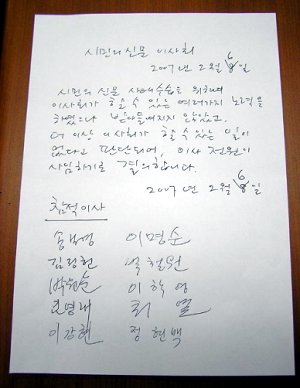 시민의신문 이사회
2007년 2월 6일
시민의 신문 사태수습을 위하여
이사회가 할 수 있는 여러가지 노력을
하였으나 받아들여지지 않았고,
더 이상 이사회가 할 수 있는 일이
없다고 판단되어, 이사 전원이
사임하기로 결의합니다.
2007년 2월 6일
참석이사
이명순
김정헌
이학영
조영래 최열
이강현 정현백